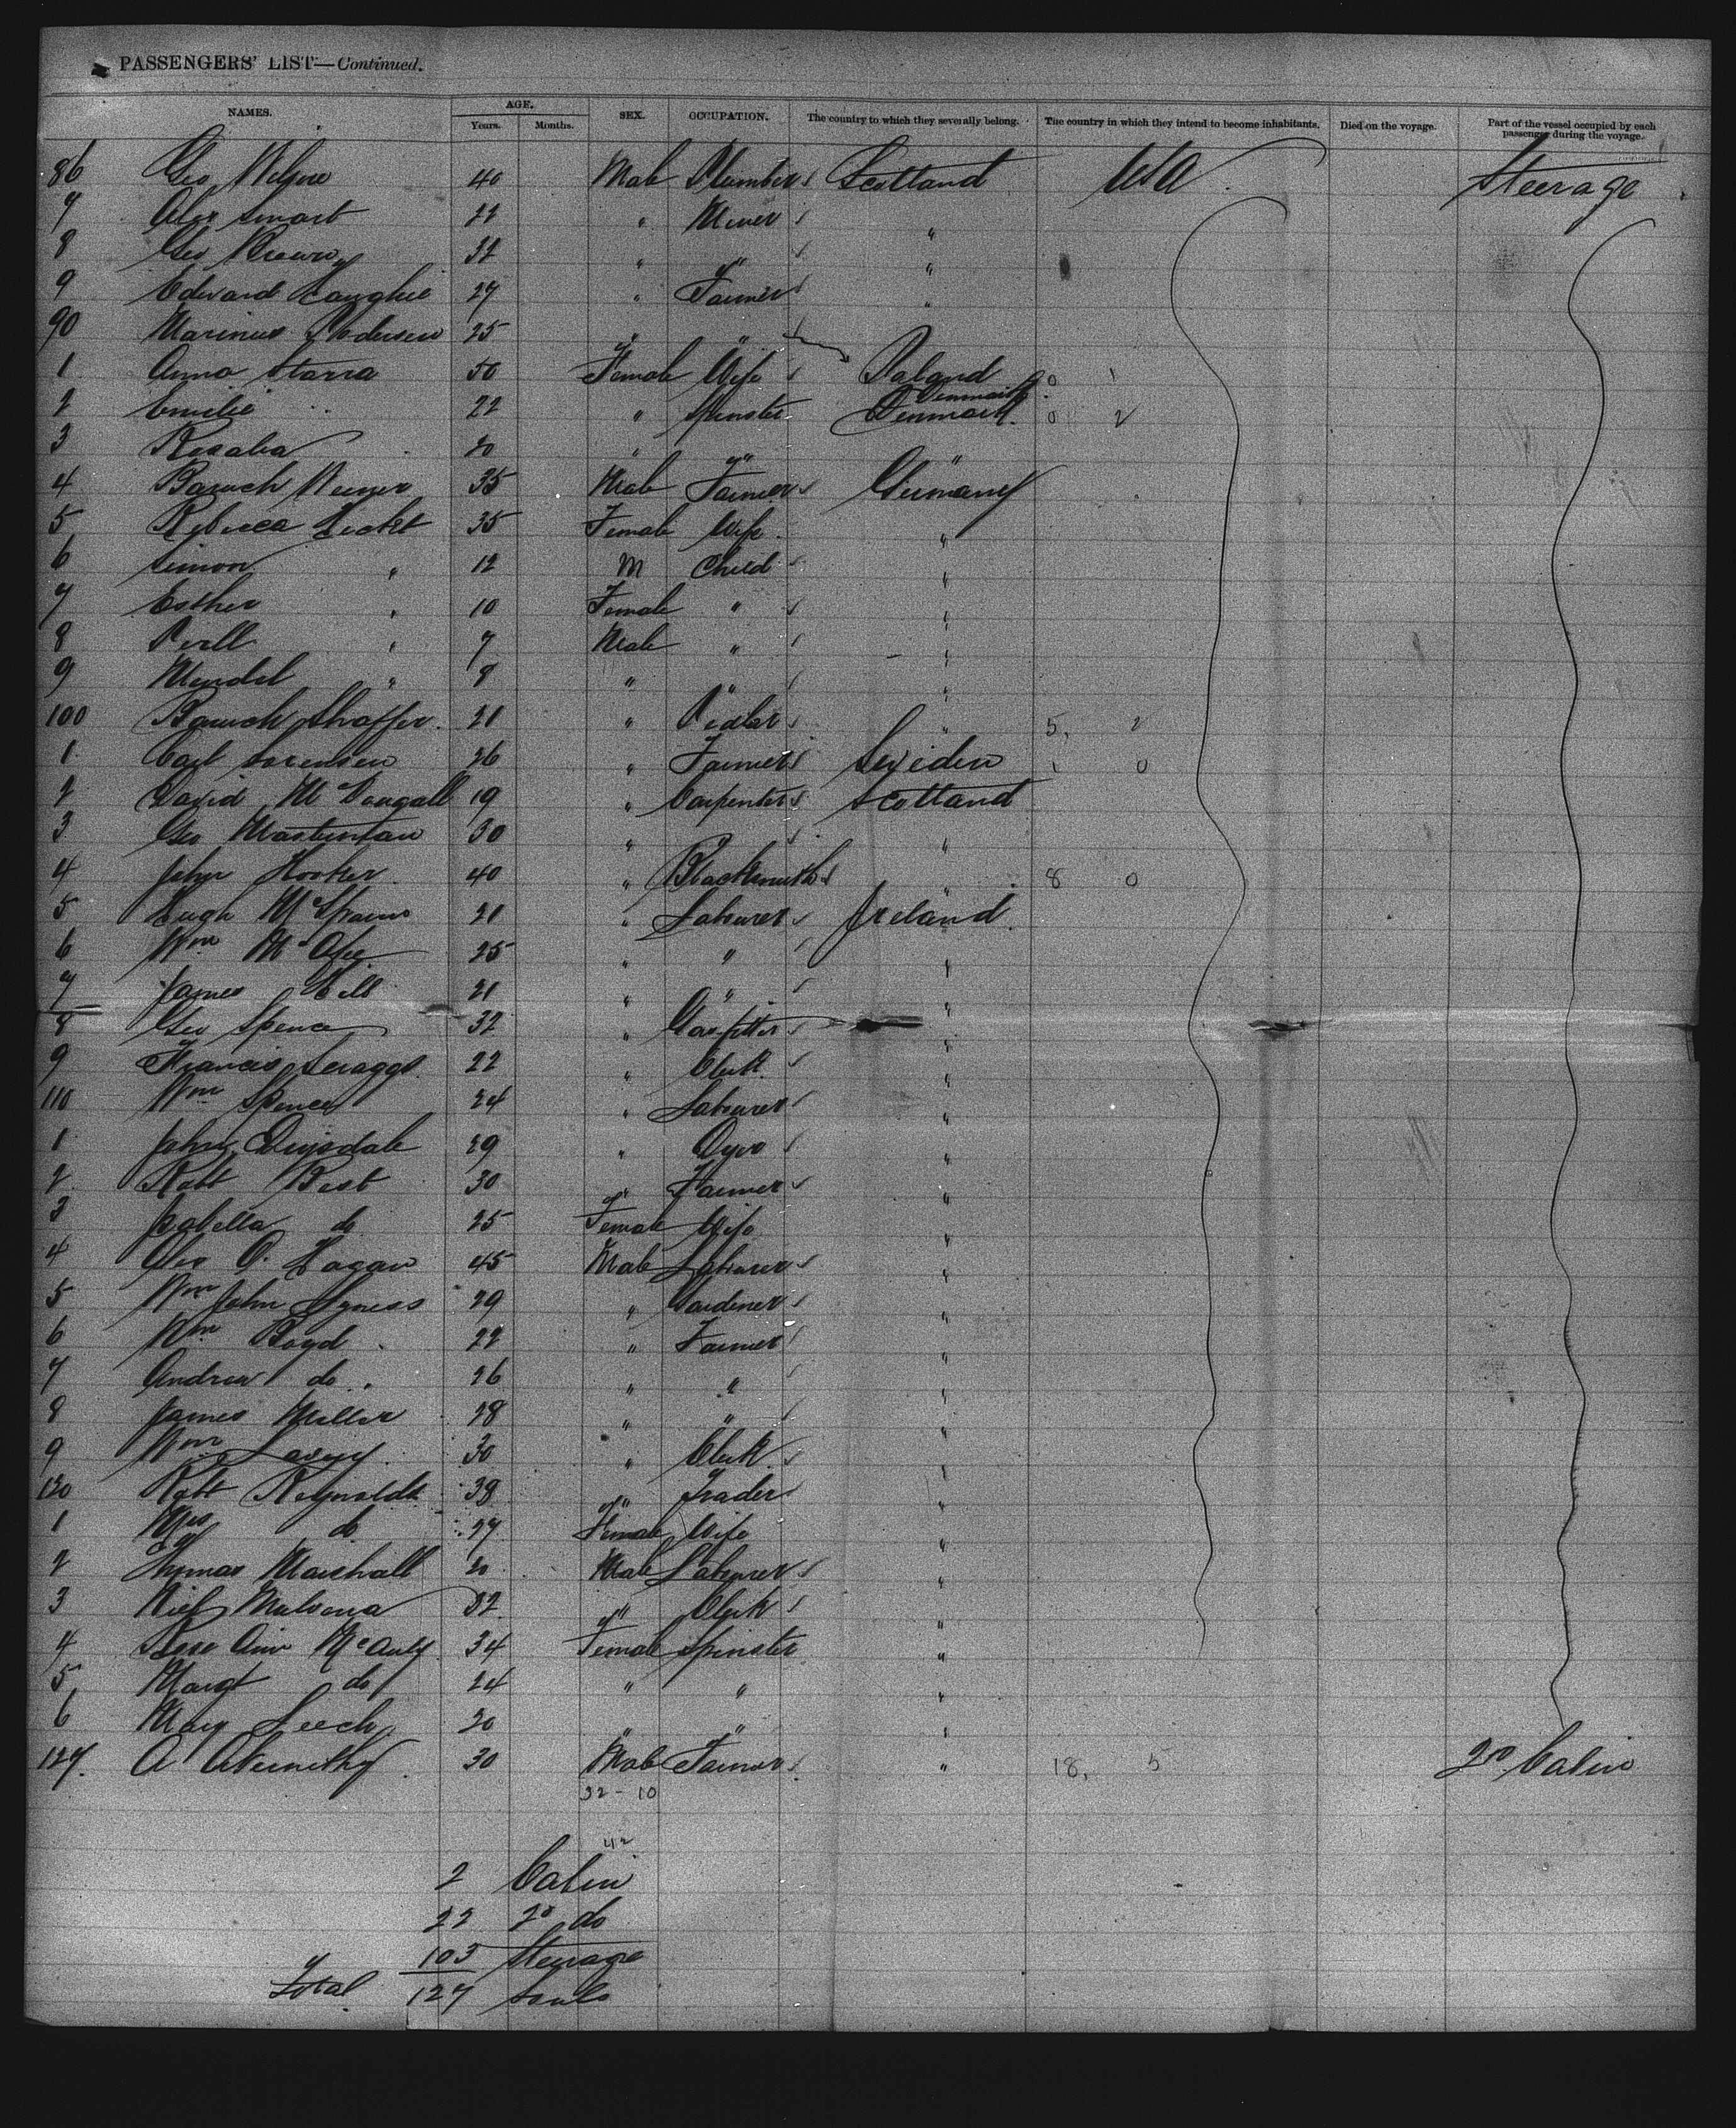 PASSENGERS' LIST—Continued.
NAMES. AGE. Years. Months. SEX. OCCUPATION. The country to which they severally belong. The country in which they intend to become inhabitants. Died on the voyage. Part of the vessel occupied by each passenger during the voyage.
86 Geo 40 Male Plumber Scotland USA Steerage
7 Alex Smart 22 " Miner "
8 Geo Brown 32 " " "
9 Edward 27 " Farmer "
90 Marinus 25 " "
1 Anna Starra 50 Female Wife Poland 0 1
Denmark
2 Emilie " 22 " Spinster Denmark. 0 2
3 Rosalia 20 " " "
4 Baruch 35 Male Farmer Germany
5 Rebecca Hecht 35 Female Wife "
6 Simon " 12 M Child "
7 Esther " 10 Female " "
8 " 7 Male " "
9 Mendel " 8 " " "
100 Baruch Shaffer 21 " Pedlar " 5, 2
1 Carl Sorensen 26 " Farmer Sweden 1 0
2 David McDougall 19 " Carpenter Scotland
3 Geo Masterman 30 " " "
4 John Hooker 40 " Blacksmith " 8 0
5 Hugh 21 " Labourer Ireland
6 Wm 25 " " "
7 James Hill 21 " " "
8 Geo Spence 32 " Gasfitter "
9 Francis Scraggs 22 " Clerk "
110 Wm Spence 24 " Labourer "
1 John 29 " "
2 Robt Best 30 " Farmer "
3 Isabella do 25 Female Wife "
4 Geo O. Hagan 45 Male Labourer "
5 Wm John Lyness 29 " Gardener "
6 Wm Boyd 22 " Farmer "
7 Andrew do 26 " " "
8 James Miller 28 " " "
9 Wm Lavery 30 " Clerk "
120 Robt Reynolds 38 " Trader "
1 Mrs do 27 Female Wife "
2 Thomas Marshall 20 Male Labourer "
3 32 " Clerk "
4 Rose Ann McAuly 34 Female Spinster "
5 Margt do 24 " " "
6 Mary Leech 20 " " "
127. A Abernethy 30 Male Farmer " 18, 5 2nd Cabin
32 - 10
42
2 Cabin
22 2d do
103 Steerage
Total 127 Souls